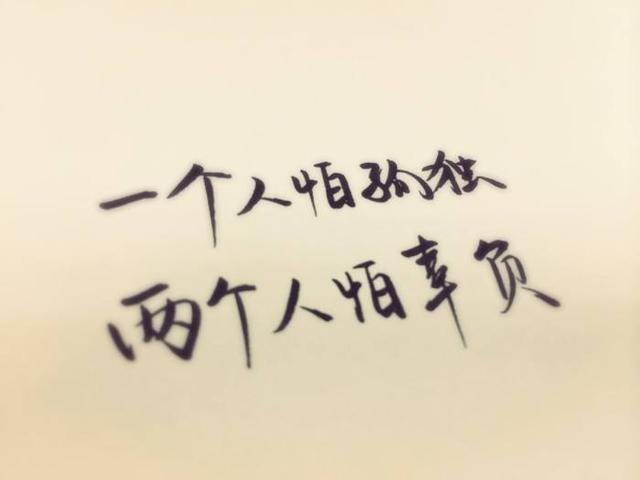 一个人怕孤独
两个人怕辜负